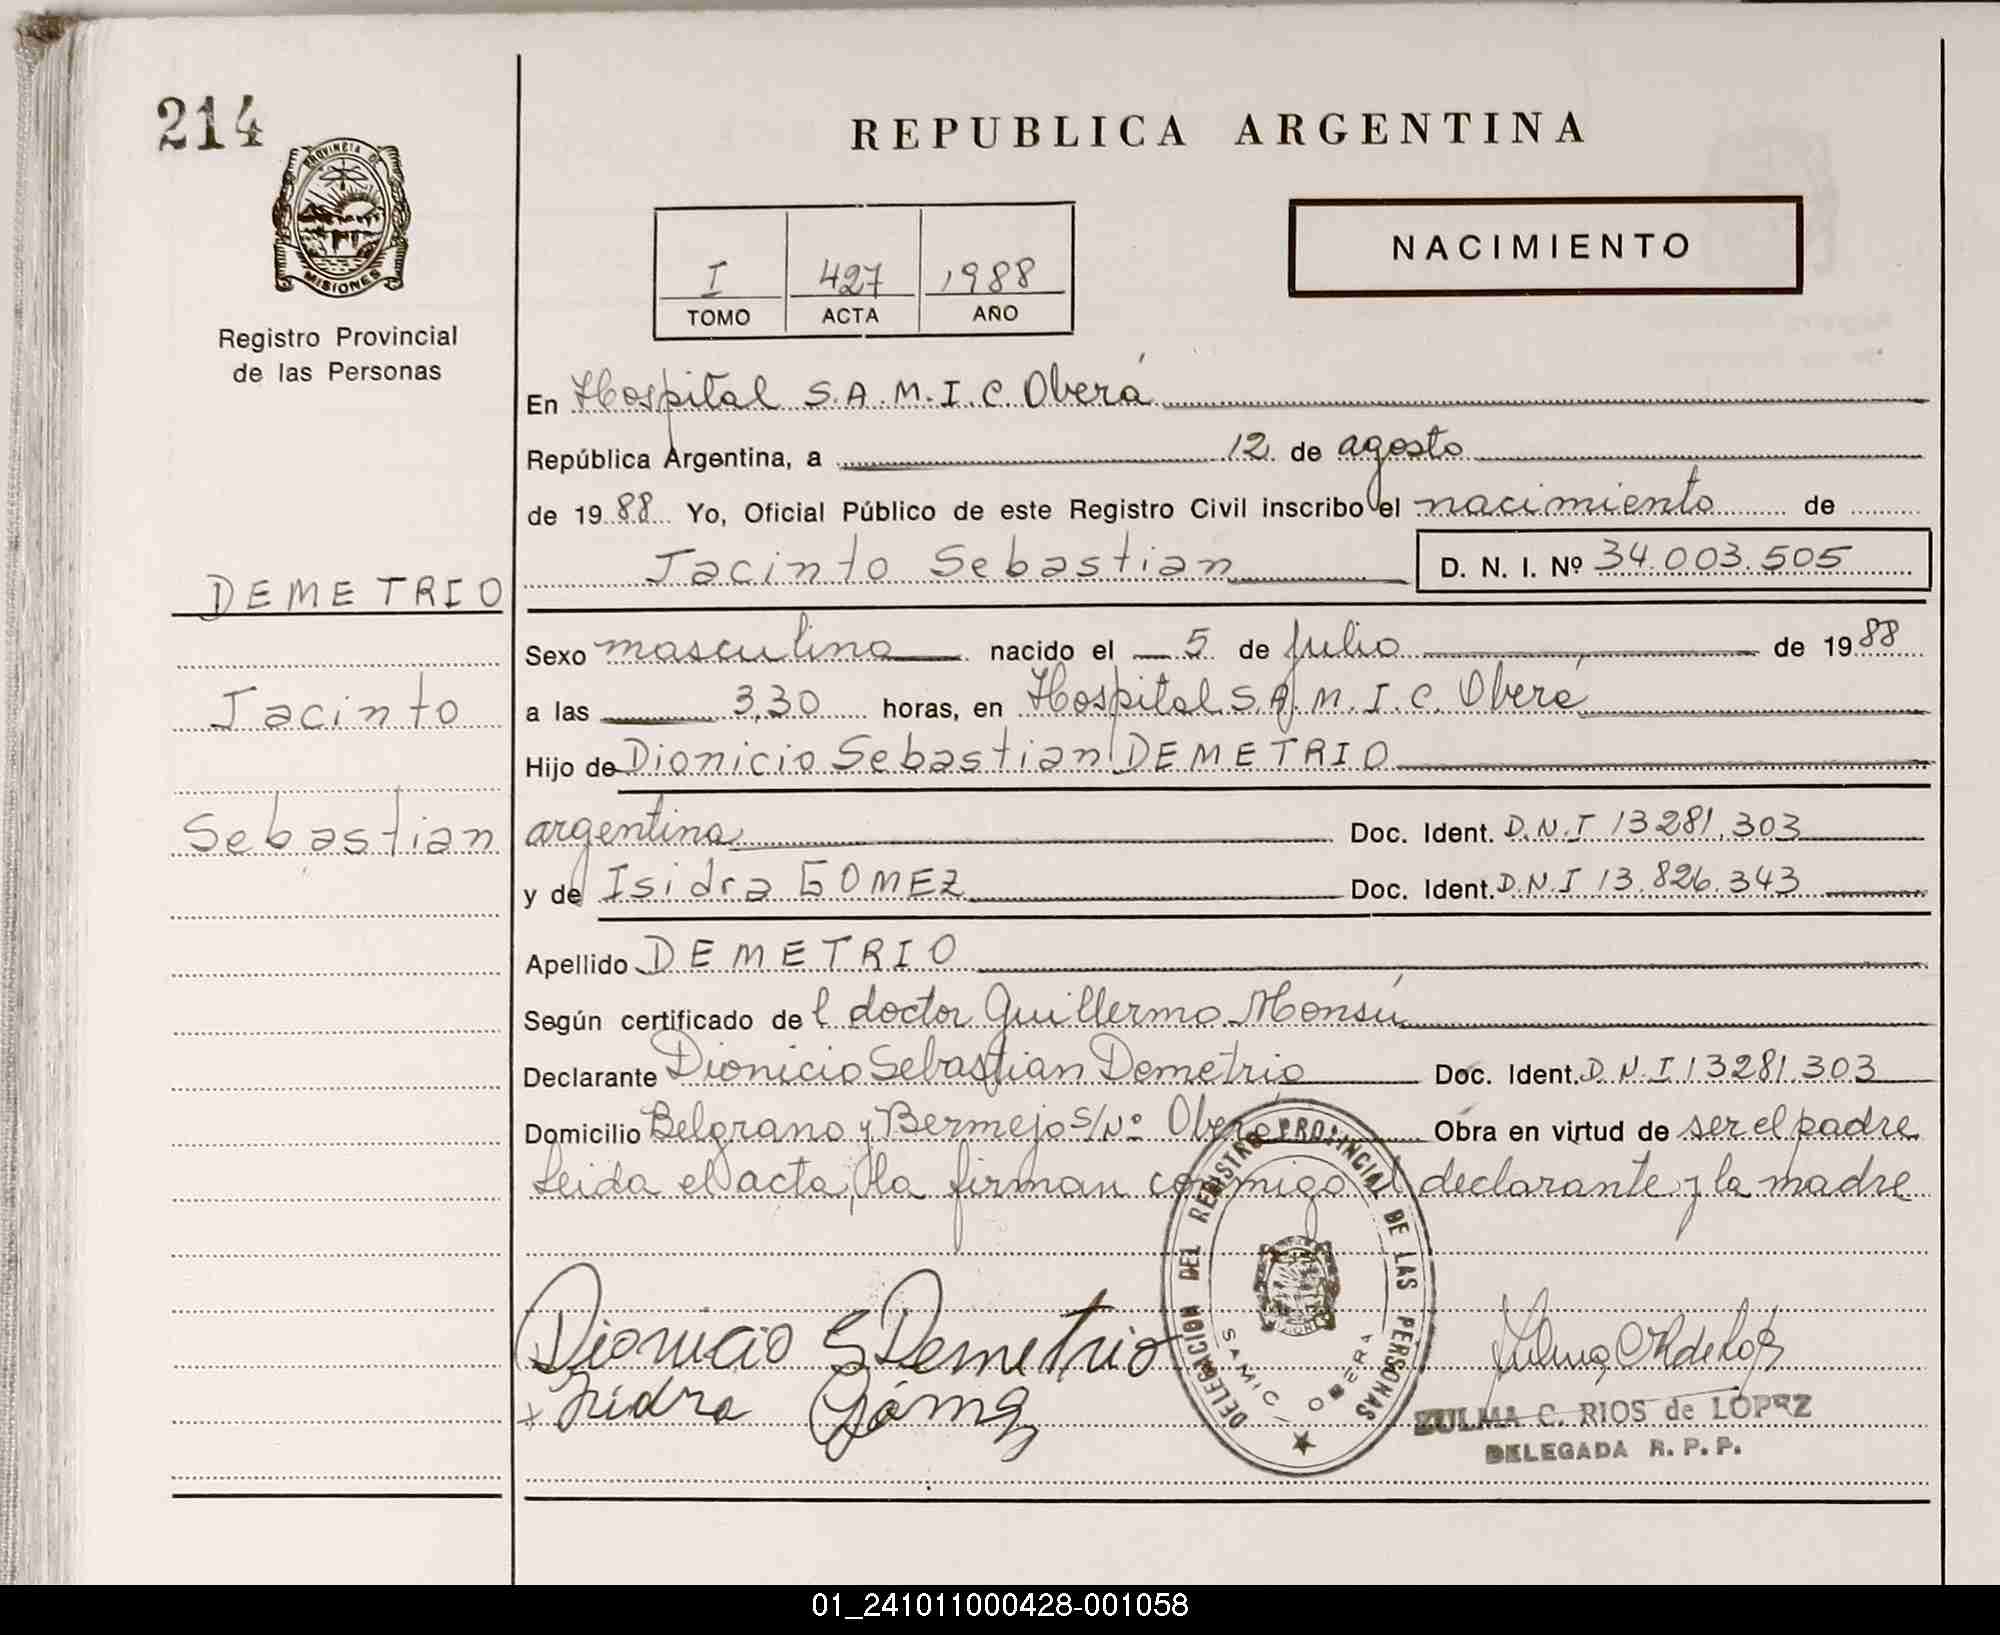 214
PROVINCIA DE
MISIONES
Registro Provincial
de las Personas
REPUBLICA ARGENTINA
I 427 1988
TOMO ACTA AÑO
NACIMIENTO
En Hospital S.A.M.I.C. Oberá
República Argentina, a 12 de agosto
de 1988 Yo, Oficial Público de este Registro Civil inscribo el nacimiento de
Jacinto Sebastian D. N. I. Nº 34.003.505
DEMETRIO
Jacinto
Sebastian
Sexo masculino nacido el 5 de julio de 1988
a las 3,30 horas, en Hospital S.A.M.I.C. Oberá
Hijo de Dionicio Sebastian DEMETRIO
argentina Doc. Ident. D.N.I 13281.303
y de Isidra GOMEZ Doc. Ident. D.N.I 13.826.343
Apellido DEMETRIO
Según certificado del doctor Guillermo Monsú
Declarante Dionicio Sebastian Demetrio Doc. Ident. D.N.I 13281.303
Domicilio Belgrano y Bermejo S/Nº Oberá Obra en virtud de ser el padre
Leida el acta, la firman conmigo el declarante y la madre
DELEGACION DEL REGISTRO PROVINCIAL DE LAS PERSONAS
SAMIC - OBERA
Dionicio S Demetrio
x Isidra Gómez
ZULMA C. RIOS de LOPEZ
DELEGADA R. P. P.
01_241011000428-001058